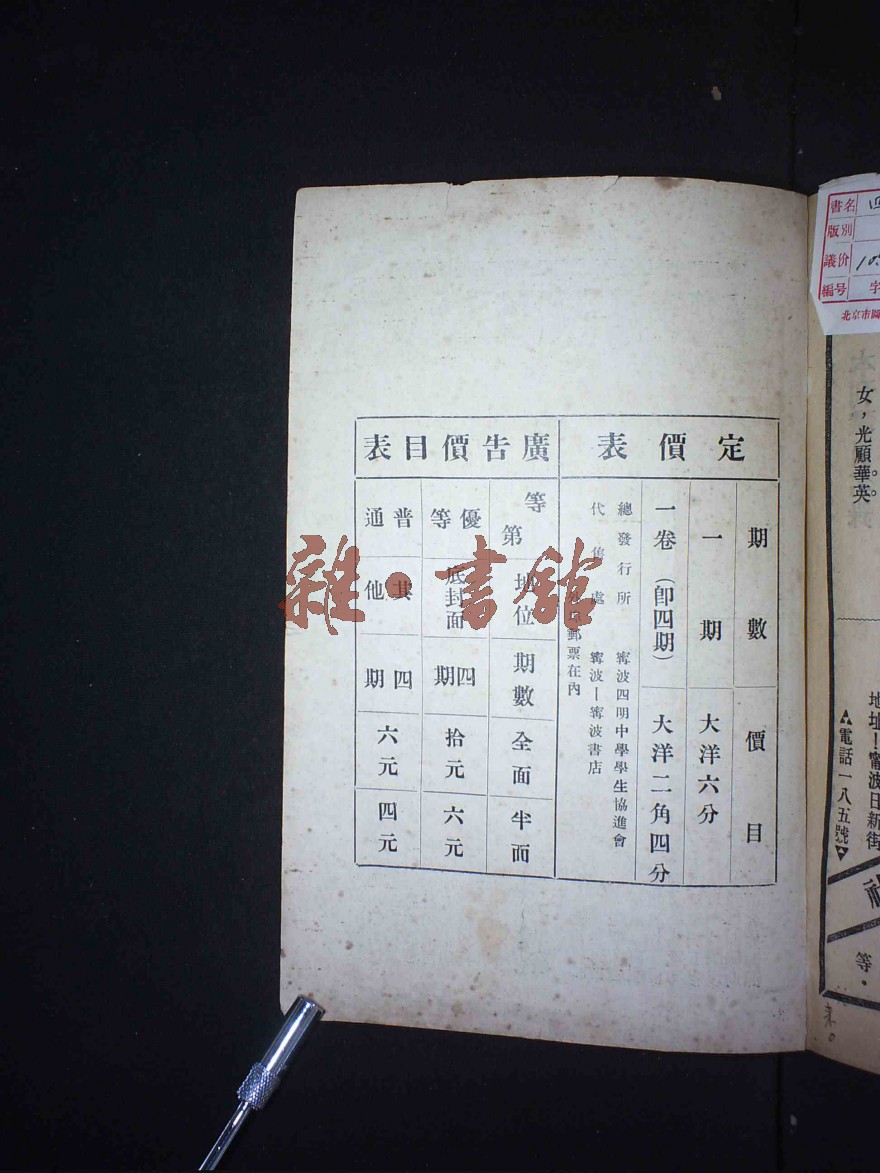 定價表
期數 價目
一期 大洋六分
一卷（即四期） 大洋二角四分
總發行所 寗波四明中學學生協進會
代售處 寗波—寗波書店
郵票在內
廣告價目表
等第 地位 期數 全面 半面
優等 底封面 四期 拾元 六元
普通 其他 四期 六元 四元
雜·書館
書名
版別
議价
編号 字
北京市
女，光顧華英。
地址—寗波日新街
▲電話一八五號▲
等。